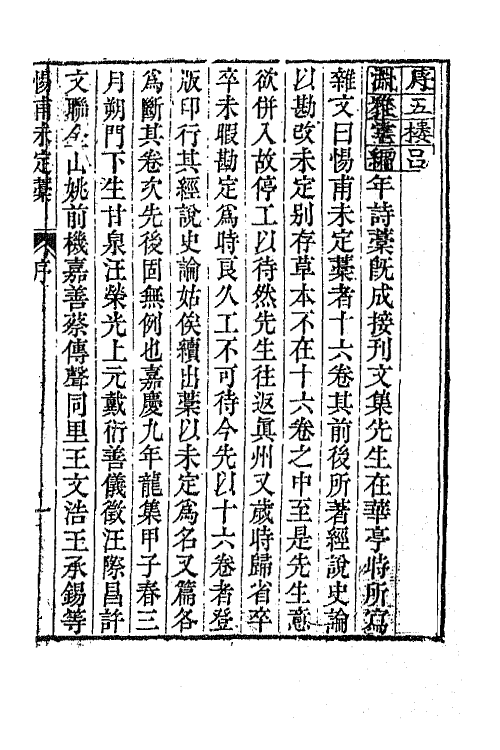 序
淵雅堂編年詩藁既成接刊文集先生在華亭時所寫
雜文曰惕甫未定藁者十六卷其前後所著經說史論
以勘改未定別存草本不在十六卷之中至是先生意
欲併入故停工以待然先生往返眞州又歲時歸省卒
卒未暇勘定爲時良久工不可待今先以十六卷者登
版印行其經說史論姑俟續出藁以未定爲名又篇各
爲斷其卷次先後固無例也嘉慶九年龍集甲子春三
月朔門下生甘泉汪榮光上元戴衍善儀徵汪際昌許
文聯金山姚前機嘉善蔡傳聲同里王文浩王承錫等
惕甫未定藁 序 一